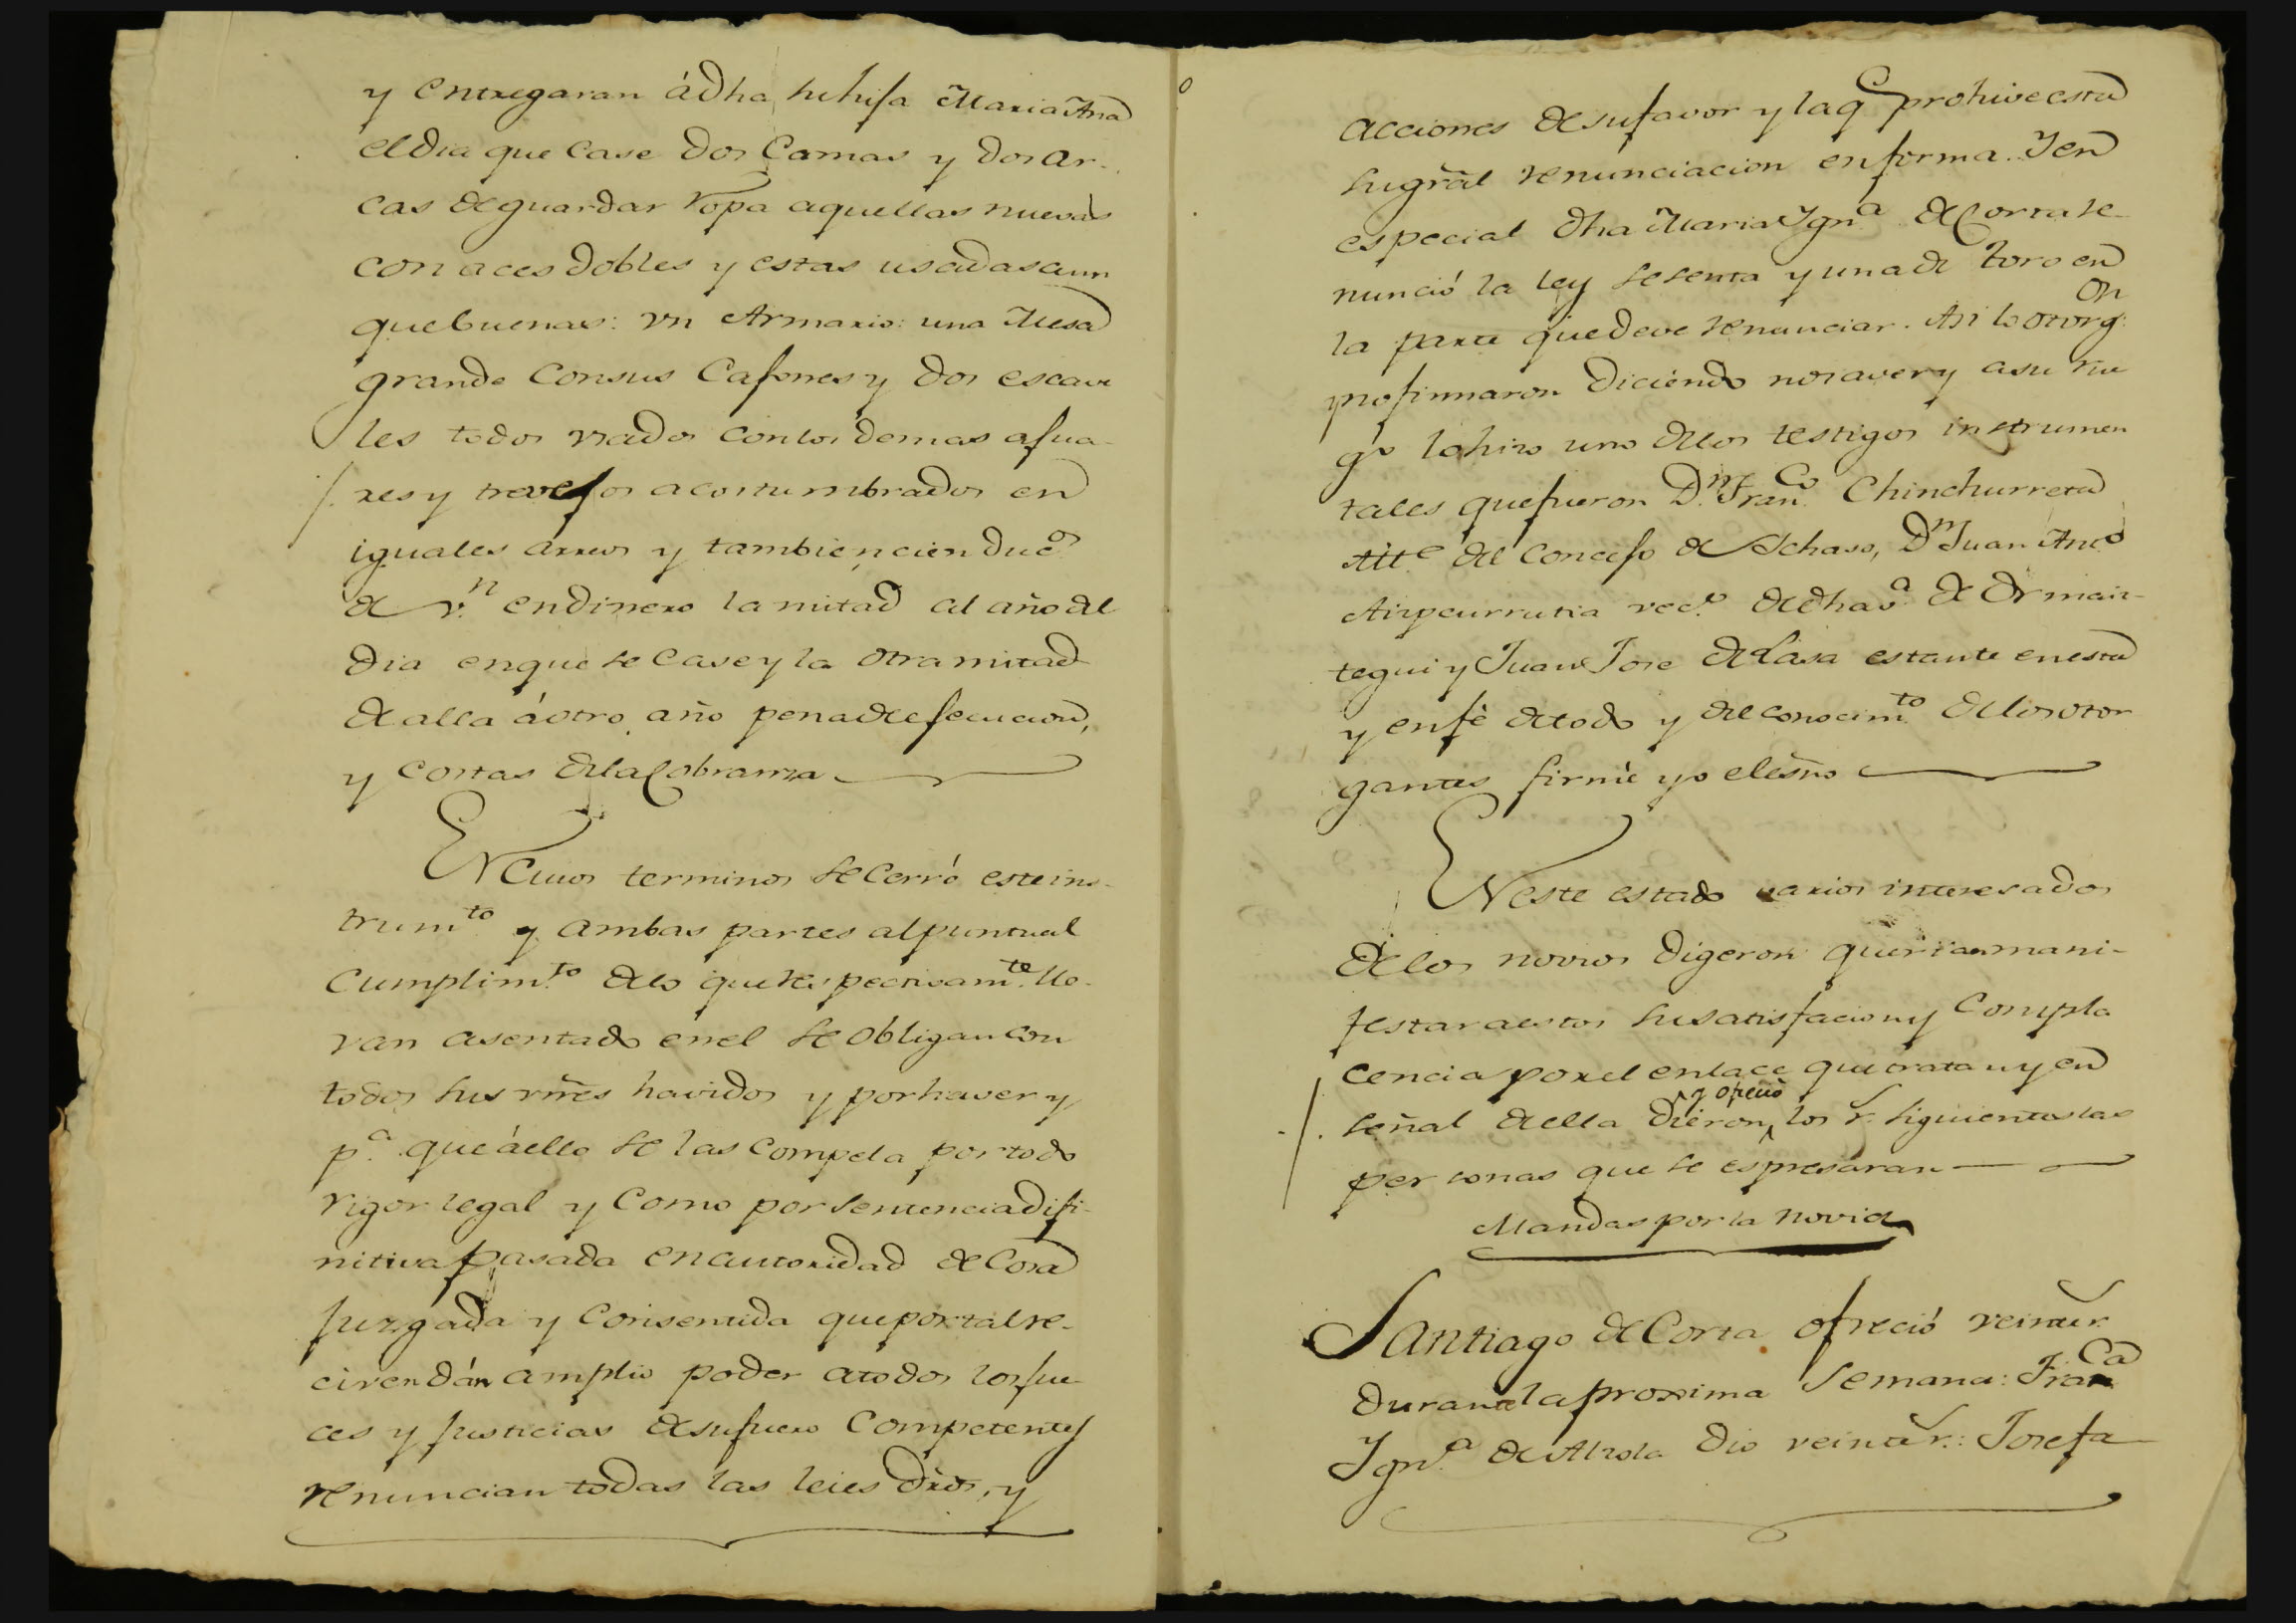 y entregaran á dha su hija Maria Ana
el dia que case dos Camas y dos Ar-
cas de guardar ropa aquellas nuevas
con aces dobles y estas usadas aun
que buenas: un Armario: una Mesa
grande con sus Cajones y dos escave
les todos usados con los demas ajua-
res y trevejos acostumbrados en
iguales arreos y tambien cien duc.os
de v.n en dinero la mitad al año del
dia en que se case y la otra mitad
de alla á otro año pena de ejecucion,
y costas de la Cobranza
En cuios terminos se Cerró este ins-
trum.to y ambas partes al puntual
Cumplim.to de lo que respectivam.te lle-
van asentado en el se obligan con
todos sus vñes havidos y por haver y
p.a que á ello se las compela por todo
rigor legal y Como por sentencia difi-
nitiva pasada en autoridad de Cosa
Juzgada y Consentida que por tal re-
civen dán amplio poder a todos los jue
ces y Justicias de su fuero Competentes
renuncian todas las leies dros, y
acciones de su favor y la q.e prohive esta
su gral renunciacion en forma. Y en
especial dha Maria Ygn.a de Corta re-
nunció la ley sesenta y una de Toro en
la parte que deve renunciar. Asi lo otorg.on
y no firmaron diciendo no saver y a su rue
go lo hizo uno de los testigos instrumen
tales que fueron D.n Fran.co Chinchurreta
Att.e del Concejo de Ichaso, D.n Juan Ant.o
Aizpeurrutia vec.o de dha v.a de Ormaiz-
tegui y Juan Jose de Lasa estante en esta
y en fè de todo y del conocim.to de los otor
gantes firmè yo el esño
En este estado varios interesados
de los novios digeron querian mani-
festar a estos su satisfacion y Compla
cencia por el enlace que tratan y en
y ofreciò
señal de ella dieron los r.s siguientes las
personas que se espresaran
Mandas por la novia
Santiago de Corta ofreció veinte r.s
durante la proxima Semana: Fran.ca
Ygn.a de Alzola dio veinte r.s: Josefa